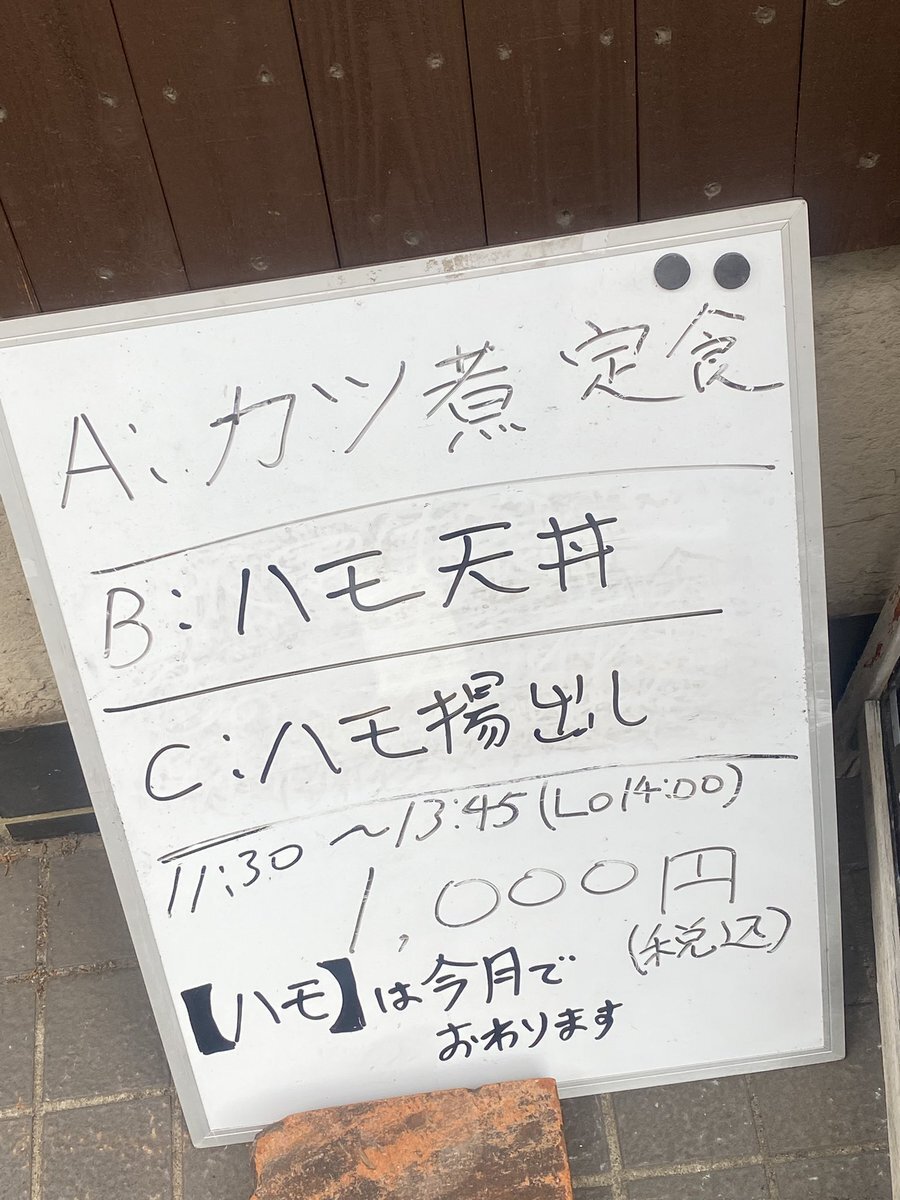 A:カツ煮定食
B:ハモ天丼
C:ハモ揚出し
11:30〜13:45(LO14:00)
1,000円
(税込)
【ハモ】は今月で
おわります